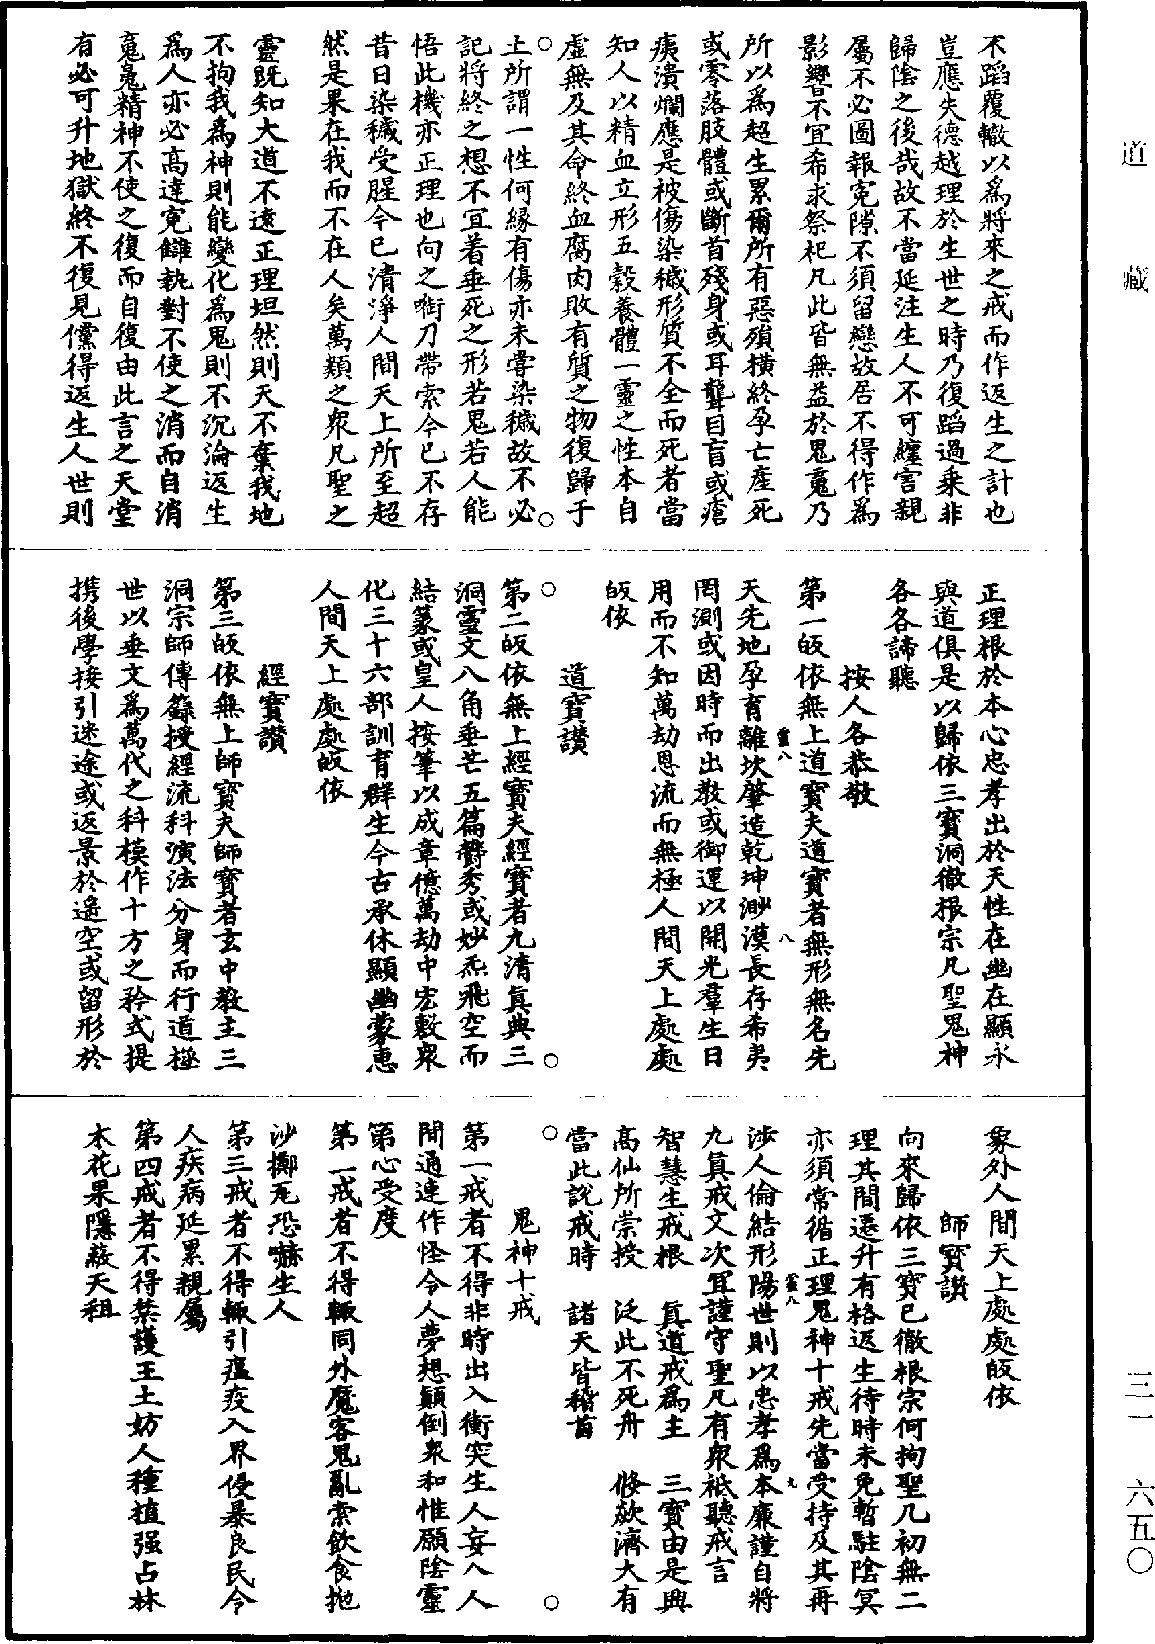 不蹈覆轍以爲將來之戒而作返生之計也
豈應失德越理於生世之時乃復蹈過乘非
歸陰之後哉故不當延注生人不可纏害親
屬不必圖報寃隙不須留戀故居不得作爲
影響不宜希求祭祀凡此皆無益於鬼䰟乃
所以爲超生累爾所有惡殞橫終孕亡產死
或零落肢體或斷首殘身或耳聾目盲或瘡
痍潰爛應是被傷染穢形質不全而死者當
知人以精血立形五穀養體一靈之性本自
虛無及其命終血腐肉敗有質之物復歸于
土所謂一性何緣有傷亦未甞染穢故不必
記將終之想不宜着垂死之形若鬼若人能
悟此機亦正理也向之衘刀帶索今已不存
昔日染穢受腥今已清淨人間天上所至超
然是果在我而不在人矣萬類之衆凡聖之
靈既知大道不遠正理坦然則天不棄我地
不拘我爲神則能變化爲鬼則不沉淪返生
爲人亦必高達寃讎執對不使之消而自消
䰟䰟精神不使之復而自復由此言之天堂
有必可升地獄終不復見儻得返生人世則
正理根於本心忠孝出於天性在幽在顯永
與道俱是以歸依三寶洞徹根宗凡聖鬼神
各各諦聽
按人各恭敬
第一皈依無上道寶夫道寶者無形無名先
天先地孕育離坎肇造乾坤渺漠長存希夷
罔測或因時而出教或御運以開光羣生日
用而不知萬劫恩流而無極人間天上處處
皈依
道寶讃
第二皈依無上經寶夫經寶者九清眞典三
洞靈文八角垂芒五篇欝秀或妙炁飛空而
結篆或皇人按筆以成章億萬劫中宏敷衆
化三十六部訓育群生今古承休顯幽蒙惠
人間天上處處皈依
經寶讃
第三皈依無上師寶夫師寶者玄中教主三
洞宗師傳籙授經流科演法分身而行道極
世以垂文爲萬代之科模作十方之矜式提
携後學接引迷途或返景於遥空或留形於
象外人間天上處處皈依
師寶讃
向來歸依三寶已徹根宗何拘聖凡初無二
理其間遷升有格返生待時未免暫駐陰冥
亦須常循正理鬼神十戒先當受持及其再
涉人倫結形陽世則以忠孝爲本廉謹自將
九眞戒文次宜謹守聖凡有衆祇聽戒言
智慧生戒根　眞道戒爲主　三寶由是興
高仙所崇授　泛此不死舟　倏欻濟大有
當此說戒時　諸天皆稽首
鬼神十戒
第一戒者不得非時出入衝突生人妄入人
間通連作怪令人夢想顚倒衆和惟願陰靈
第心受度
第一戒者不得輒同外魔客鬼亂索飲食抛
沙擲瓦恐嚇生人
第三戒者不得輒引瘟疫入界侵暴良民令
人疾病延累親屬
第四戒者不得禁護王土妨人種植强占林
木花果隱蔽天租
靈八
八
靈八
九
道藏
三一
六五〇